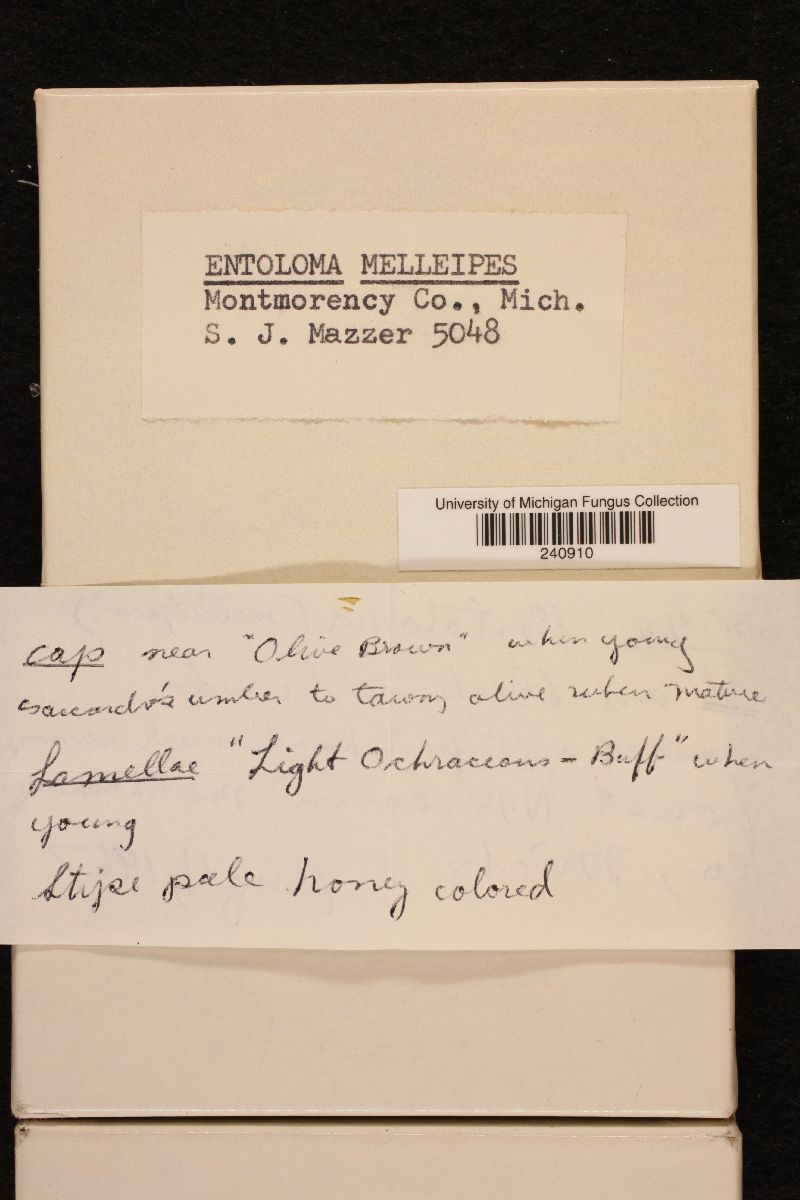 ENTOLOMA MELLEIPES
Montmorency Co., Mich.
S. J. Mazzer 5048
University of Michigan Fungus Collection
240910
cap near "Olive Brown" when young
saccardo's umber to tawny olive when mature
Lamellae "Light Ochraceous - Buff" when
young
Stipe pale honey colored